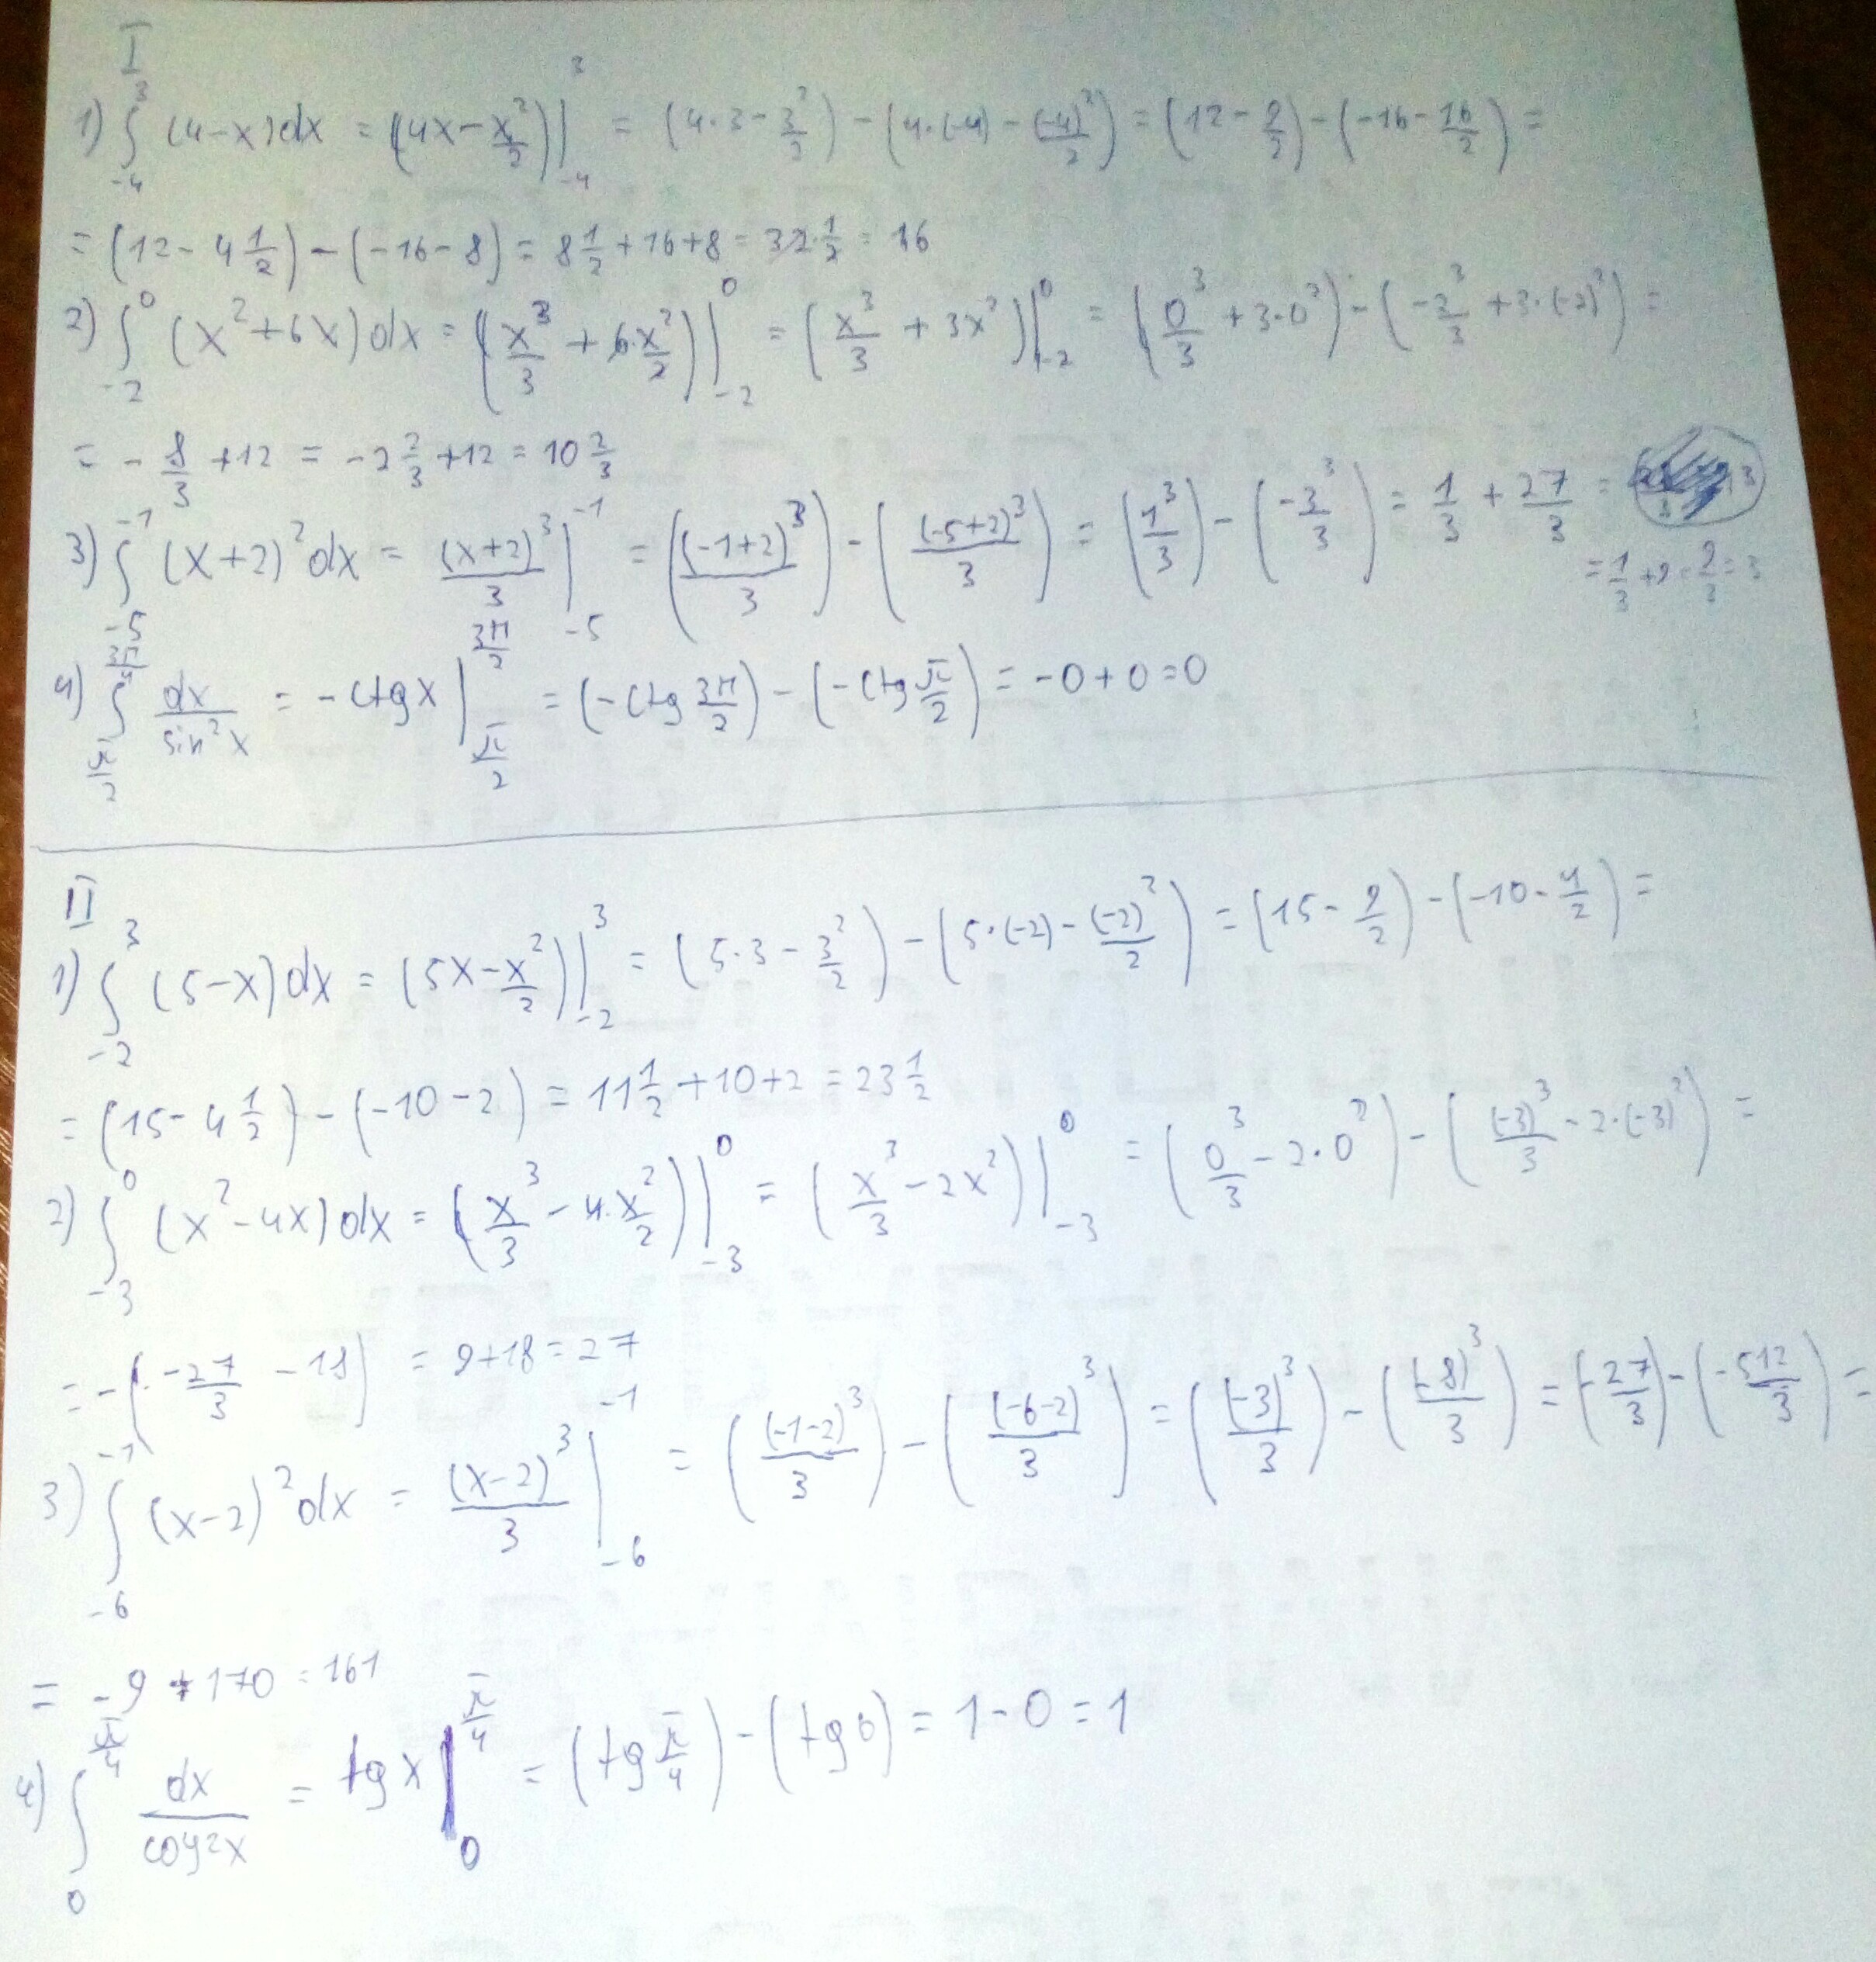 I
1) ∫_{-4}^{3} (4-x)dx = (4x - x²/2)|_{-4}^{3} = (4·3 - 3²/2) - (4·(-4) - (-4)²/2) = (12 - 9/2) - (-16 - 16/2) =
= (12 - 4 1/2) - (-16 - 8) = 8 1/2 + 16 + 8 = 32·1/2 = 16
2) ∫_{-2}^{0} (x² + 6x)dx = (x³/3 + 6·x²/2)|_{-2}^{0} = (x³/3 + 3x²)|_{-2}^{0} = (0³/3 + 3·0²) - (-2³/3 + 3·(-2)²) =
= -8/3 + 12 = -2 2/3 + 12 = 10 2/3
3) ∫_{-5}^{-1} (x+2)²dx = (x+2)³/3 |_{-5}^{-1} = ((-1+2)³/3) - ((-5+2)³/3) = (1³/3) - (-3³/3) = 1/3 + 27/3 =
= 1/3 + 9 = 9/3 = 3
4) ∫_{π/2}^{3π/2} dx/sin²x = -ctgx |_{π/2}^{3π/2} = (-ctg 3π/2) - (-ctg π/2) = -0 + 0 = 0
II
1) ∫_{-2}^{3} (5-x)dx = (5x - x²/2)|_{-2}^{3} = (5·3 - 3²/2) - (5·(-2) - (-2)²/2) = (15 - 9/2) - (-10 - 4/2) =
= (15 - 4 1/2) - (-10 - 2) = 11 1/2 + 10 + 2 = 23 1/2
2) ∫_{-3}^{0} (x² - 4x)dx = (x³/3 - 4·x²/2)|_{-3}^{0} = (x³/3 - 2x²)|_{-3}^{0} = (0³/3 - 2·0²) - ((-3)³/3 - 2·(-3)²) =
= -(-27/3 - 18) = 9 + 18 = 27
3) ∫_{-6}^{-1} (x-2)²dx = (x-2)³/3 |_{-6}^{-1} = ((-1-2)³/3) - ((-6-2)³/3) = ((-3)³/3) - ((-8)³/3) = (-27/3) - (-512/3) =
= -9 + 170 = 161
4) ∫_{0}^{π/4} dx/cos²x = tgx |_{0}^{π/4} = (tg π/4) - (tg 0) = 1 - 0 = 1